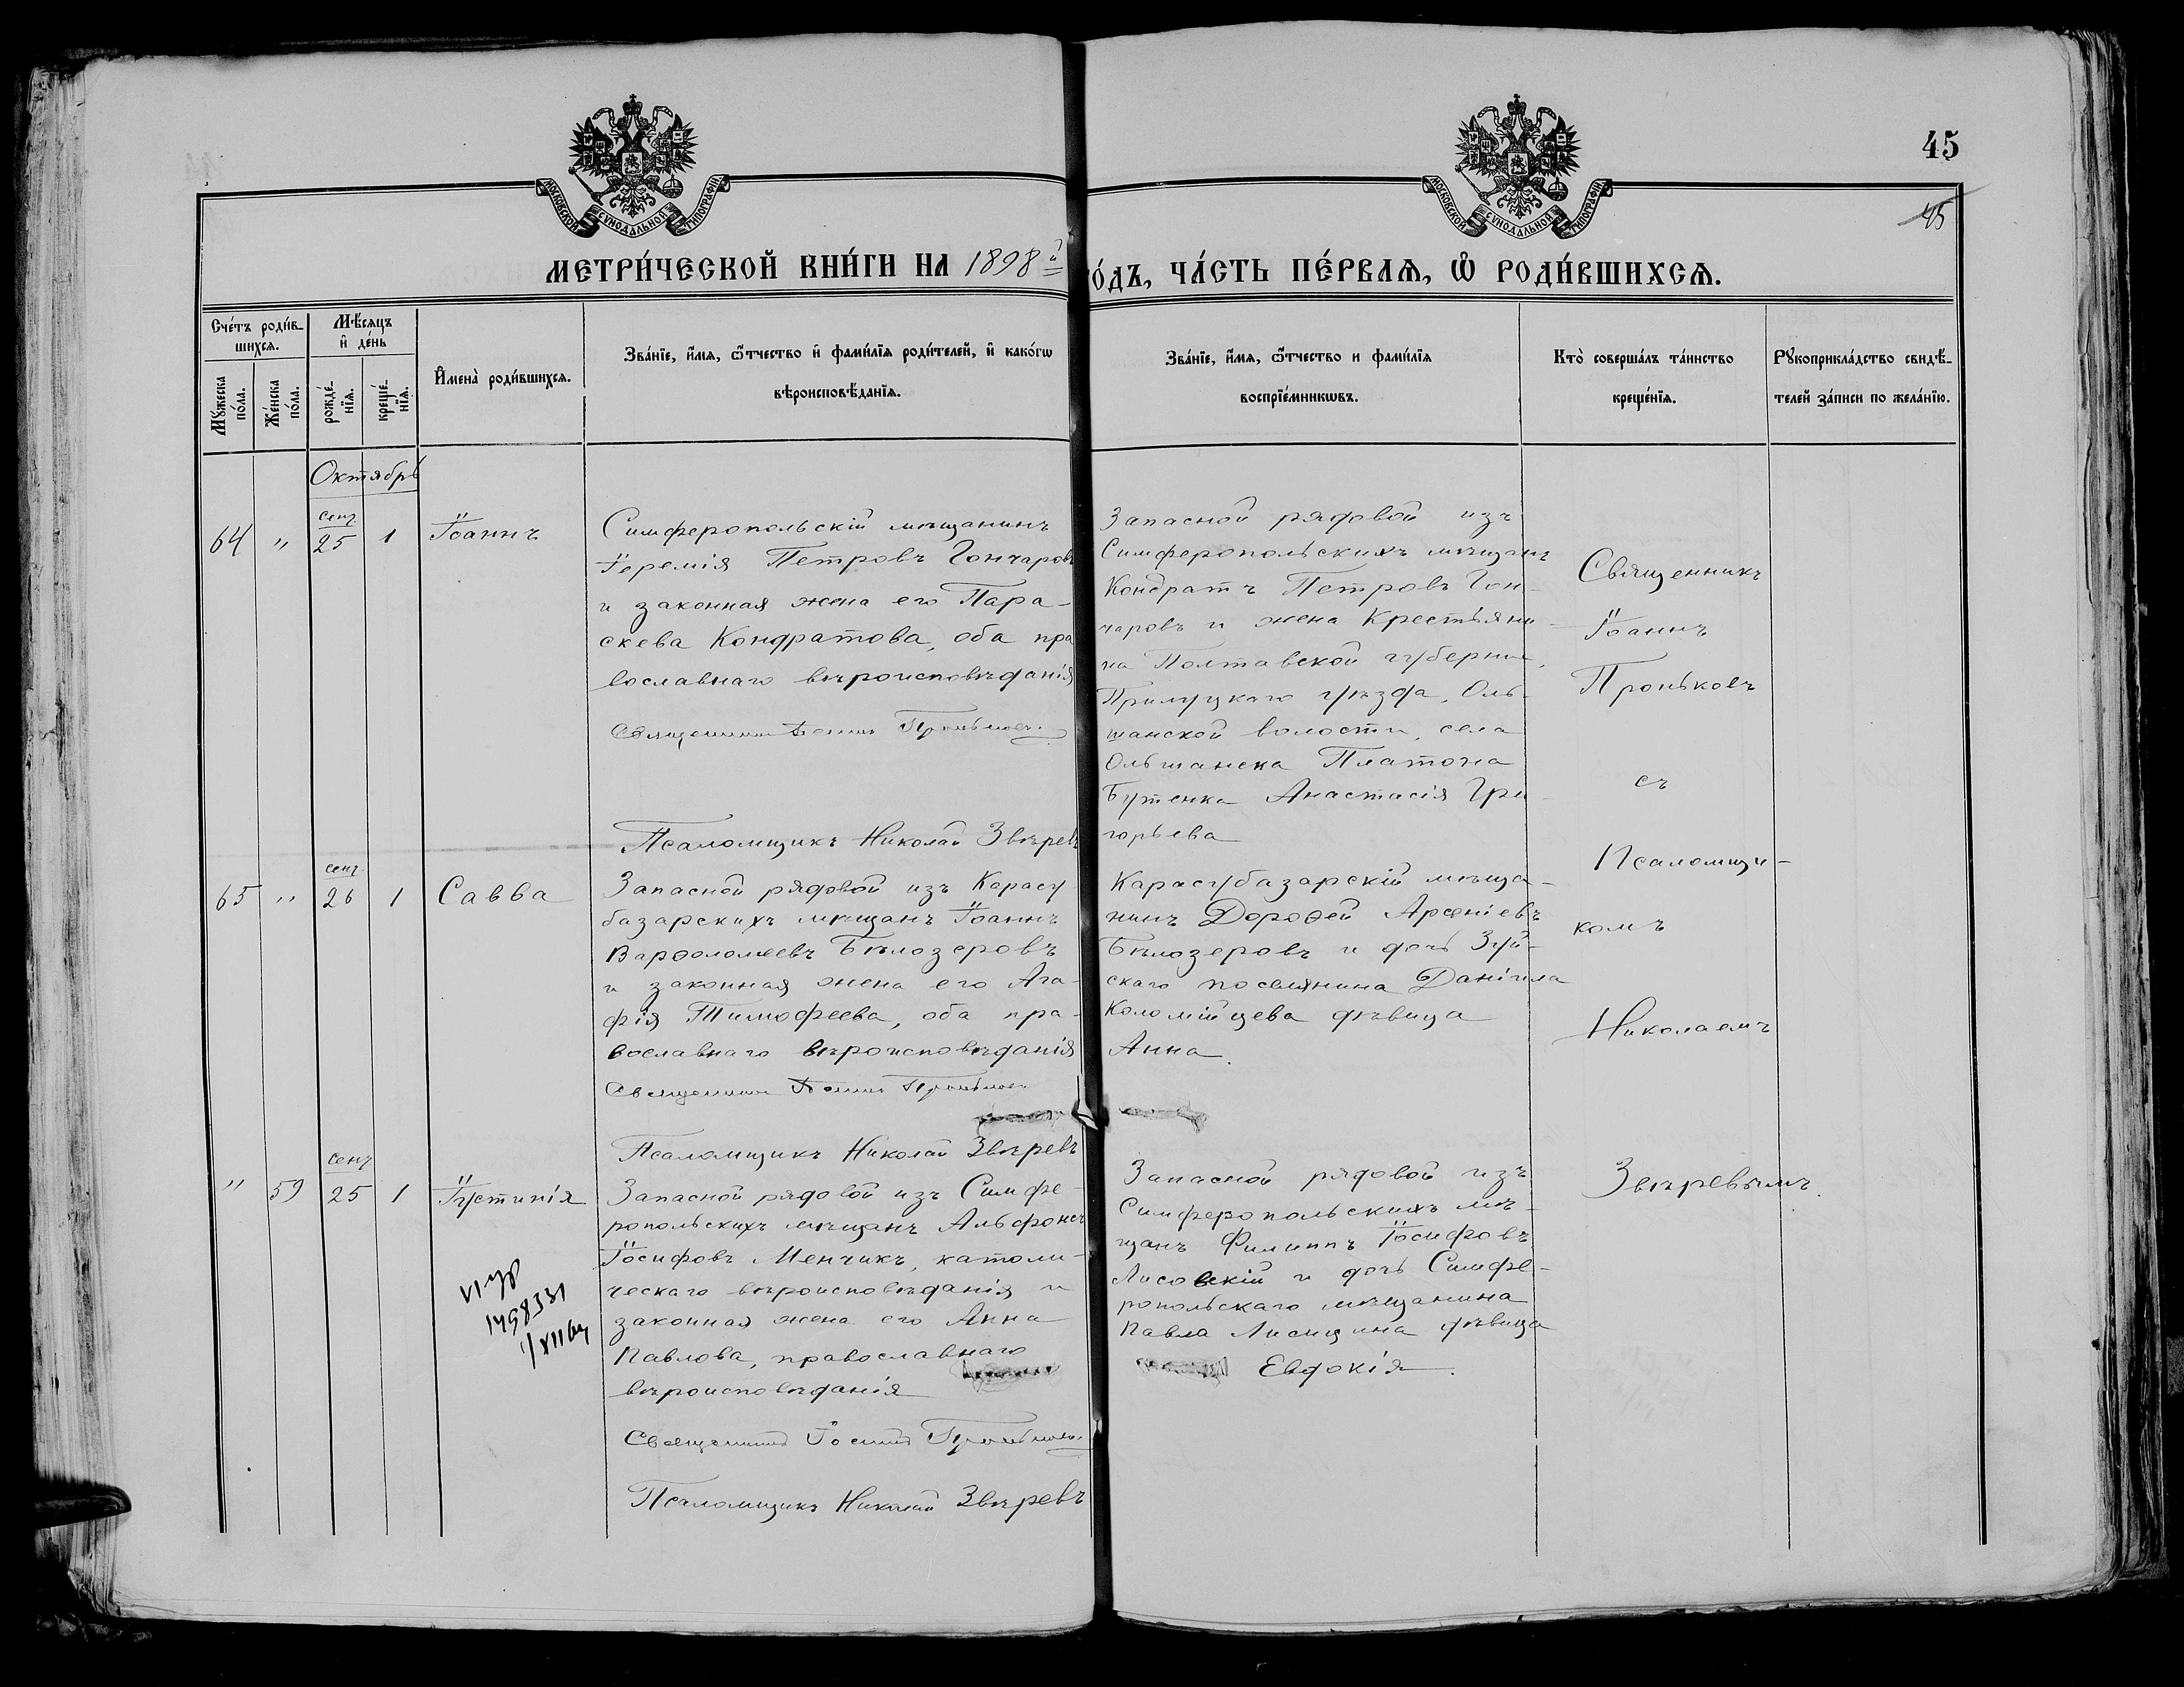 45
45
МОСКОВСКОЙ СѴНОДАЛЬНОЙ ТИПОГРАФІИ
МОСКОВСКОЙ СѴНОДАЛЬНОЙ ТИПОГРАФІИ
МЕТРИ́ЧЕСКОЙ КНИ́ГИ НА 1898й
го́дъ, ча́сть пе́рвая, ѡ҆ роди́вшихся.
Сче́тъ роди́в-
шихся.
Мѹ́жеска по́ла.
Же́нска по́ла.
Мѣ́сяцъ и҆ де́нь
рожде́-нїя.
креще́-нїя.
И҆мена̀ роди́вшихся.
Зва́нїе, и҆́мя, ѻ҆́тчество и҆ фами́лїя роди́телей, и҆ како́гѡ
вѣроисповѣ́данїя.
Зва́нїе, и҆́мя, ѻ҆́тчество и фами́лїя
воспрїе́мникѡвъ.
Кто̀ соверша́лъ та́инство
креще́нїя.
Рѹкоприкла́дство свидѣ́-
телей за́писи по жела́нїю.
Октябрь
64 " сент. 25 1 Іоаннъ
Симферопольскій мѣщанинъ
Іеремія Петровъ Гончаровъ
и законная жена его Пара-
скева Кондратова, оба пра
вославнаго вѣроисповѣданія
Священникъ Іоаннъ Проньковъ
Псаломщикъ Николай Звѣревъ
Запасной рядовой изъ
Симферопольскихъ мѣщанъ
Кондратъ Петровъ Гон-
чаровъ и жена Крестьяни-
на Полтавской губерніи,
Прилуцкаго уѣзда, Оль-
шанской волости, села
Ольшанска Платона
Бутенка Анастасія Гри-
горьева
65 " сент 26 1 Савва
Запасной рядовой изъ Карасу
базарскихъ мѣщанъ Іоаннъ
Варѳоломеевъ Бѣлозеровъ
и законная жена его Ага-
фія Тимофеева, оба пра-
вославнаго вѣроисповѣданія
Священникъ Іоаннъ Проньковъ
Псаломщикъ Николай Звѣревъ
Карасубазарскій мѣща-
нинъ Дороѳей Арсеніевъ
Бѣлозеровъ и дочь Зуй-
скаго поселянина Даніила
Коломійцева дѣвица
Анна.
" 59 сент 25 1 Іустинія
Запасной рядовой изъ Симфе-
ропольскихъ мѣщанъ Альфонсъ
Іосифовъ Менчикъ, католи-
ческаго вѣроисповѣданія и
законная жена его Анна
Павлова, православнаго
вѣроисповѣданія
Священникъ Іоаннъ Проньковъ
Псаломщикъ Николай Звѣревъ
Запасной рядовой изъ
Симферопольскихъ мѣ-
щанъ Филиппъ Іосифовъ
Лисовскій и дочь Симфе-
ропольскаго мѣщанина
Павла Лисицина дѣвица
Евдокія.
Священникъ
Іоаннъ
Проньковъ
съ
Псаломщи-
комъ
Николаемъ
Звѣревымъ.